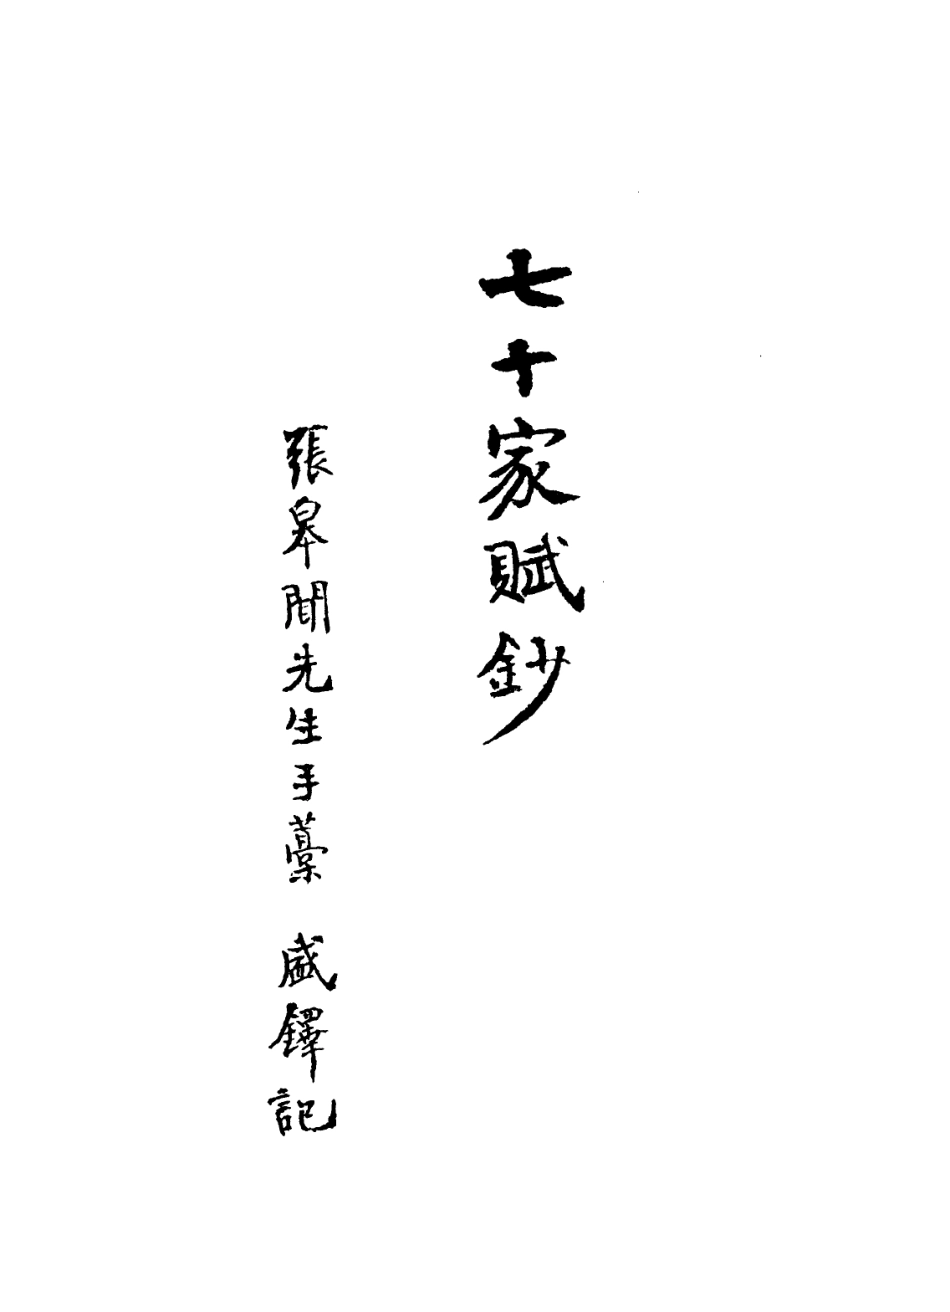 七十家賦鈔
張皋聞先生手藁 盛鐸記